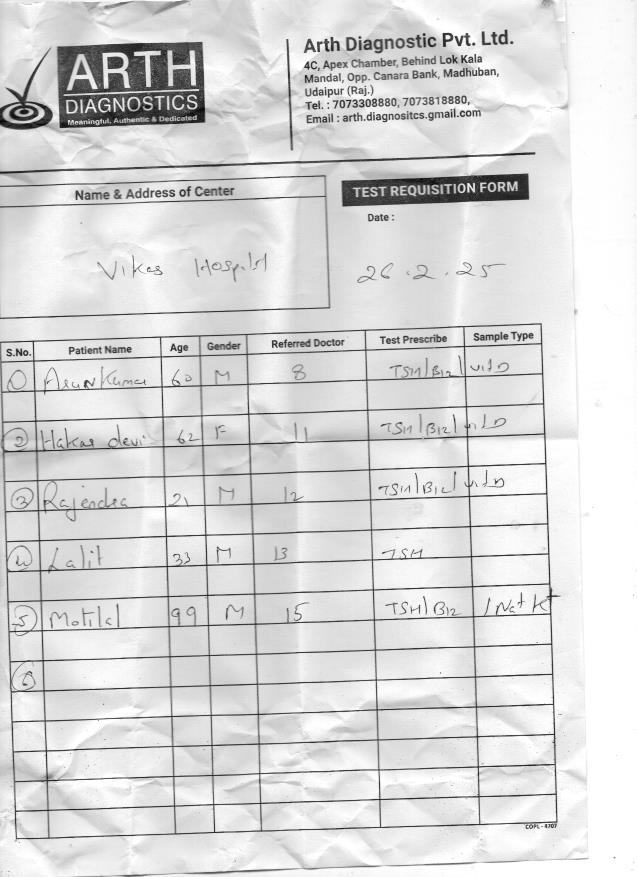 ARTH
DIAGNOSTICS
Meaningful, Authentic & Dedicated
Arth Diagnostic Pvt. Ltd.
4C, Apex Chamber, Behind Lok Kala
Mandal, Opp. Canara Bank, Madhuban,
Udaipur (Raj.)
Tel. : 7073308880, 7073818880,
Email : arth.diagnositcs.gmail.com
Name & Address of Center
TEST REQUISITION FORM
Date :
Vikas Hospital
26.2.25
S.No. Patient Name Age Gender Referred Doctor Test Prescribe Sample Type
1 Arun Kumar 60 M 8 TSH/B12/vit D
2 Hakar devi 62 F 11 TSH/B12/vit D
3 Rajendra 21 M 12 TSH/B12/vit D
4 Lalit 33 M 13 TSH
5 Motilal 99 M 15 TSH/B12 /Na+ K+
6
COPL - 4707